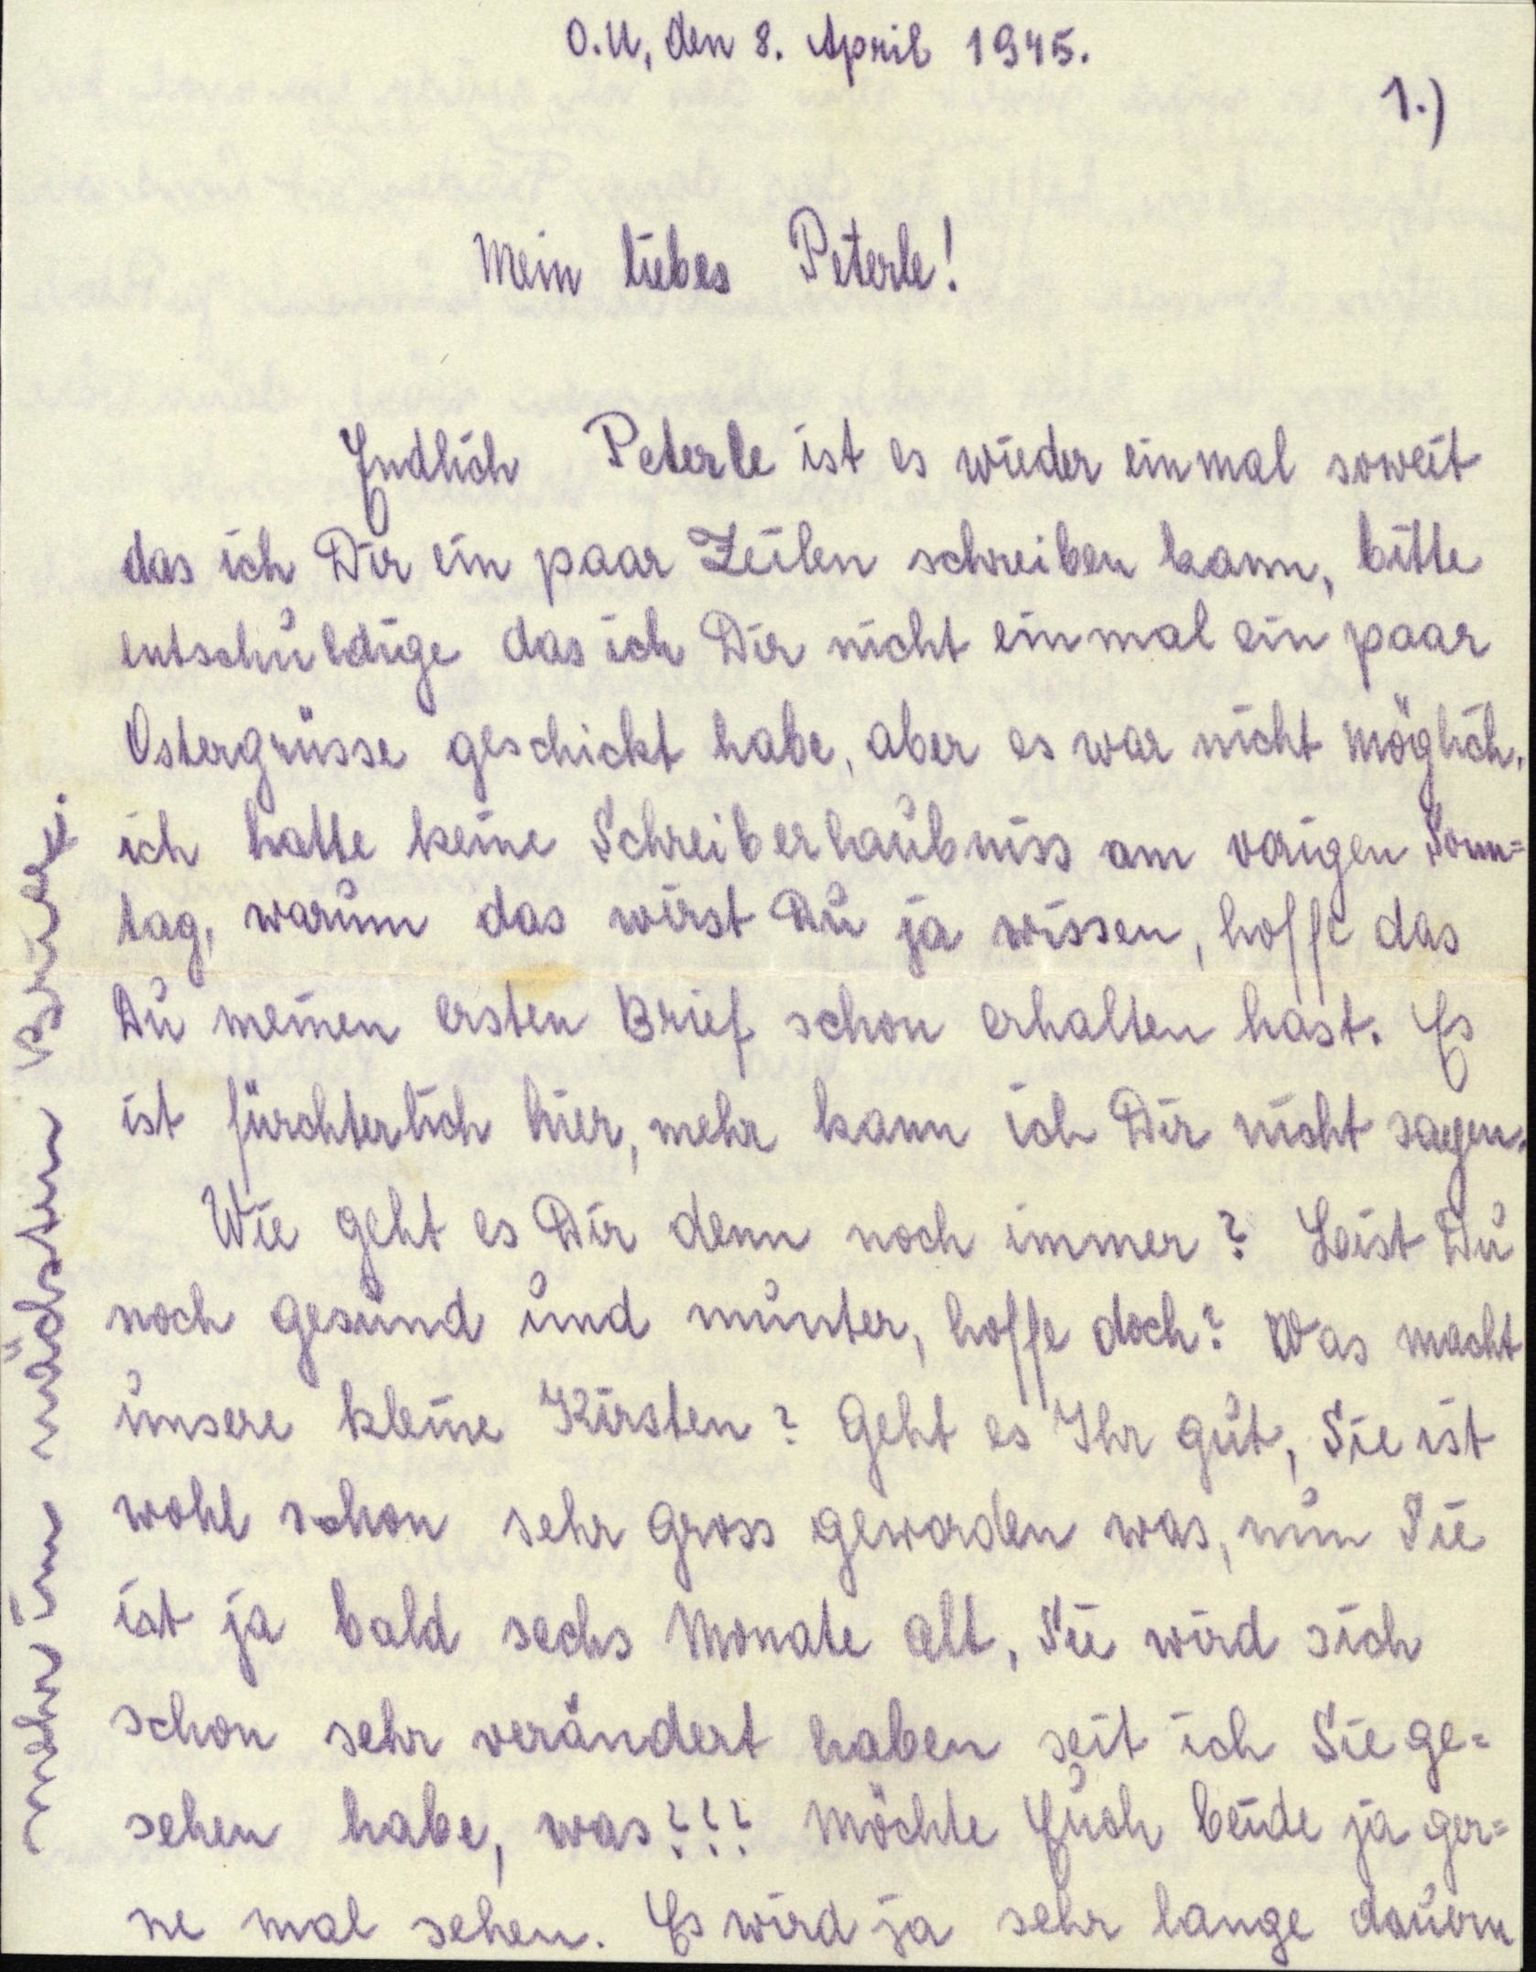 O.U, den 8. April 1945.
1.)
Mein liebes Peterle!
Endlich Peterle ist es wieder einmal soweit
das ich Dir ein paar Zeilen schreiben kann, bitte
entschuldige das ich Dir nicht einmal ein paar
Ostergrüsse geschickt habe, aber es war nicht möglich,
ich hatte keine Schreiberlaubniss am vorigen Sonn=
tag, warum das wirst Du ja wissen, hoffe das
Du meinen ersten Brief schon erhalten hast. Es
ist fürchterlich hier, mehr kann ich Dir nicht sagen.
Wie geht es Dir denn noch immer? Seist Du
noch gesund und munter, hoffe doch? Was macht
unsere kleine Kirsten? Geht es Ihr gut, Sie ist
wohl schon sehr gross geworden was, nun Sie
ist ja bald sechs Monate alt, Sie wird sich
schon sehr verändert haben seit ich Sie ge=
sehen habe, was?!? Möchte Euch beide ja ger=
ne mal sehen. Es wird ja sehr lange dauern
mehr im nächsten Brief.